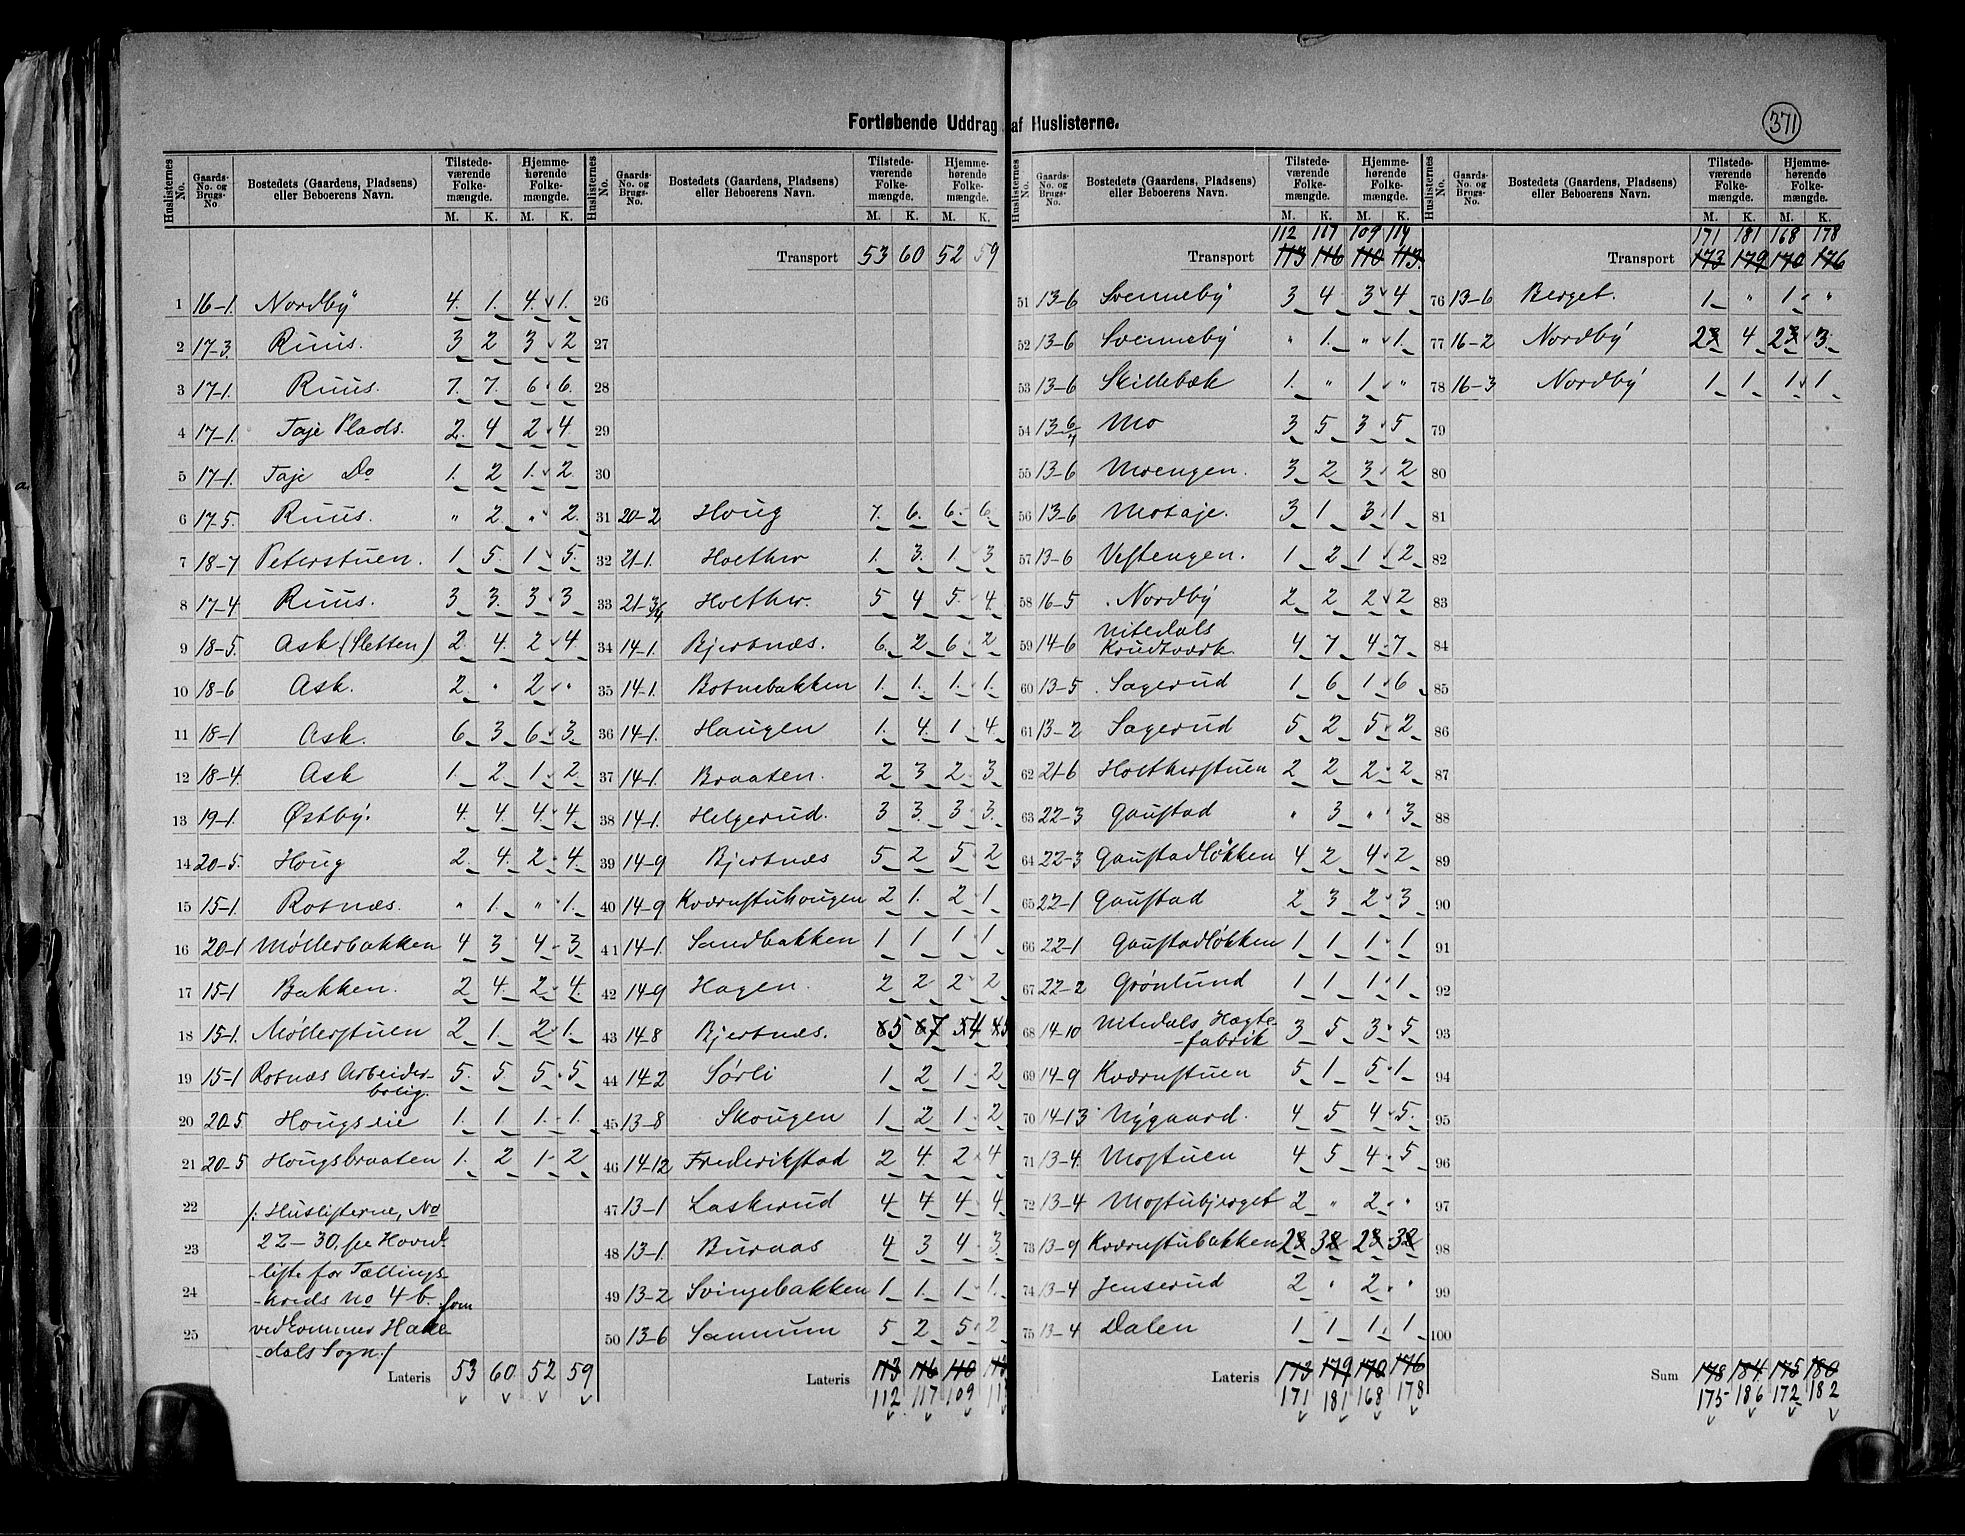 371
Fortløbende Uddrag af Huslisterne.
Huslisternes No. Gaards-No. og Brugs-No. Bostedets (Gaardens, Pladsens) eller Beboerens Navn. Tilstedeværende Folkemængde. M. K. Hjemmehørende Folkemængde. M. K.
1 16-1. Nordby 4. 1. 4. 1.
2 17-3. Ruus. 3 2 3 2
3 17-1. Ruus. 7. 7. 6. 6.
4 17-1. Taje Plads. 2. 4. 2. 4.
5 17-1. Taje Do 1. 2 1. 2
6 17-5. Ruus. " 2. " 2.
7 18-7 Peterstuen. 1. 5. 1. 5.
8 17-4 Ruus. 3 3. 3. 3
9 18-5. Ask (Sletten) 2. 4. 2. 4.
10 18-6 Ask. 2. " 2. "
11 18-1 Ask. 6. 3. 6. 3.
12 18-4. Ask 1. 2 1. 2.
13 19-1. Østby. 4. 4. 4. 4.
14 20-5. Houg 2. 4. 2. 4.
15 15-1. Rotnæs. " 1. " 1.
16 20-1 Møllerbakken 4 3 4. 3
17 15-1 Bakken. 2 4. 2. 4.
18 15-1. Møllerstuen 2 1. 2. 1.
19 15-1 Rotnæs Arbeider-
bolig. 5. 5 5. 5
20 20-5 Hougseie 1. 1 1. 1.
21 20-5 Hougsbraaten 1. 2 1. 2
22 /: Huslisterne, No
23 22-30, se Hoved-
-liste for Tællings-
24 -kreds No 4 b. som
25 vedkommer Hake-
-dals Sogn :/
Lateris 53 60 52 59
Huslisternes No. Gaards-No. og Brugs-No. Bostedets (Gaardens, Pladsens) eller Beboerens Navn. Tilstedeværende Folkemængde. M. K. Hjemmehørende Folkemængde. M. K.
Transport 53 60 52 59
26
27
28
29
30
31 20-2 Houg 7. 6. 6. 6.
32 21-1. Holther 1. 3. 1. 3
33 21-3/4 Holther. 5 4 5. 4.
34 14-1. Bjertnæs. 6. 2 6. 2
35 14-1. Botnebakken 1. 1. 1. 1.
36 14-1. Haugen 1. 4. 1. 4.
37 14-1. Braaten. 2 3 2. 3.
38 14-1. Helgerud. 3 3. 3 3.
39 14-9 Bjertnæs 5 2 5 2
40 14-9 Kværnstuhougen 2 1. 2 1
41 14-1. Sandbakken 1 1 1 1
42 14-9 Hagen. 2 2 2 2
43 14-8 Bjertnæs. 5 7 4
44 14-2 Sørli 1 2 1 2
45 13-8 Skougen 1 2 1 2
46 14-12 Frederikstad 2 4. 2 4
47 13-1 Laskerud 4 4 4 4
48 13-1. Buraas 4 3 4 3.
49 13-2 Svingebakken 1 1. 1. 1.
50 13-6 Samum 5 2 5 2
Lateris 113 116 110
112 117 109
Huslisternes No. Gaards-No. og Brugs-No. Bostedets (Gaardens, Pladsens) eller Beboerens Navn. Tilstedeværende Folkemængde. M. K. Hjemmehørende Folkemængde. M. K.
112 117 109 114
Transport 113 116 110 113
51 13-6 Svenneby 3 4 3 4
52 13-6 Svenneby " 1. " 1.
53 13-6 Skillebæk 1. " 1 "
54 13-6/7 Mo 3 5 3 5
55 13-6 Moengen. 3 2 3 2
56 13-6 Motaje. 3 1 3 1
57 13-6 Vestengen. 1 2 1 2
58 16-5 Nordby 2 2 2 2
59 14-6 Nitedals
Krudtværk. 4 7 4 7
60 13-5 Sagerud 1 6 1 6
61 13-2 Sagerud 5 2 5 2
62 21-6 Holtherstuen 2 2 2 2
63 22-3 Gaustad " 3 " 3
64 22-3 Gaustadløkken 4 2 4 2
65 22-1 Gaustad 2 3 2 3
66 22-1 Gaustadløkken 1 1 1 1
67 22-2 Grønlund 1 1 1 1
68 14-10 Nitedals Hægte-
-fabrik 3 5 3 5
69 14-9 Kværnstuen 5 1 5 1
70 14-13 Nygaard. 4 5 4 5.
71 13-4. Mostuen 4 5 4 5
72 13-4 Mostubjerget 2 " 2 "
73 13-9 Kværnstubakken 2 3 2 3
74 13-4 Jenserud 2 " 2 "
75 13-4 Dalen 1 1 1 1
Lateris 173 179 170 176
171 181 168 178
Huslisternes No. Gaards-No. og Brugs-No. Bostedets (Gaardens, Pladsens) eller Beboerens Navn. Tilstedeværende Folkemængde. M. K. Hjemmehørende Folkemængde. M. K.
171 181 168 178
Transport 173 179 170 176
76 13-6 Berget. 1 " 1 "
77 16-2 Nordby 2 4 2 3.
78 16-3 Nordby 1 1 1 1
79
80
81
82
83
84
85
86
87
88
89
90
91
92
93
94
95
96
97
98
99
100
Sum 178 184 175 180
175 186 172 182